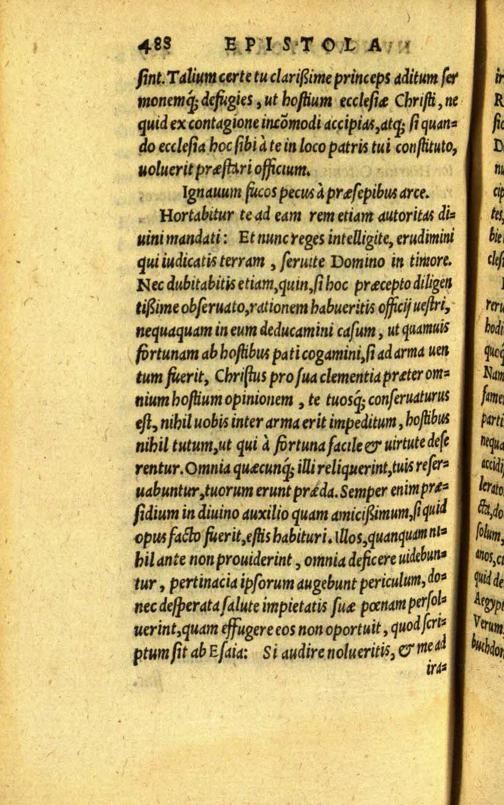 488 EPISTOLA
sint. Talium certe tu clarißime princeps aditum ser
monemq́; defugies, ut hostium ecclesiæ Christi, ne
quid ex contagione incōmodi accipias, atq; si quan=
do ecclesia hoc sibi à te in loco patris tui constituto,
uoluerit præstari officium.
Ignauum fucos pecus à præsepibus arce.
Hortabitur te ad eam rem etiam autoritas di=
uini mandati: Et nunc reges intelligite, erudimini
qui iudicatis terram, seruite Domino in timore.
Nec dubitabitis etiam, quin, si hoc præcepto diligen
tißime obseruato, rationem habueritis officij uestri,
nequaquam in eum deducamini casum, ut quamuis
fortunam ab hostibus pati cogamini, si ad arma uen
tum fuerit, Christus pro sua clementia præter om=
nium hostium opinionem, te tuosq́; conseruaturus
est, nihil uobis inter arma erit impeditum, hostibus
nihil tutum, ut qui à fortuna facile & uirtute dese
rentur. Omnia quæcunq́; illi reliquerint, tuis reser=
uabuntur, tuorum erunt præda. Semper enim præ=
sidium in diuino auxilio quam amicißimum, si quid
opus facto fuerit, estis habituri. Illos, quanquam ni=
hil ante non prouiderint, omnia deficere uidebun=
tur, pertinacia ipsorum augebunt periculum, do=
nec desperata salute impietatis suæ pœnam persol=
uerint, quam effugere eos non oportuit, quod scri=
ptum sit ab Esaia: Si audire nolueritis, & me ad
ira=